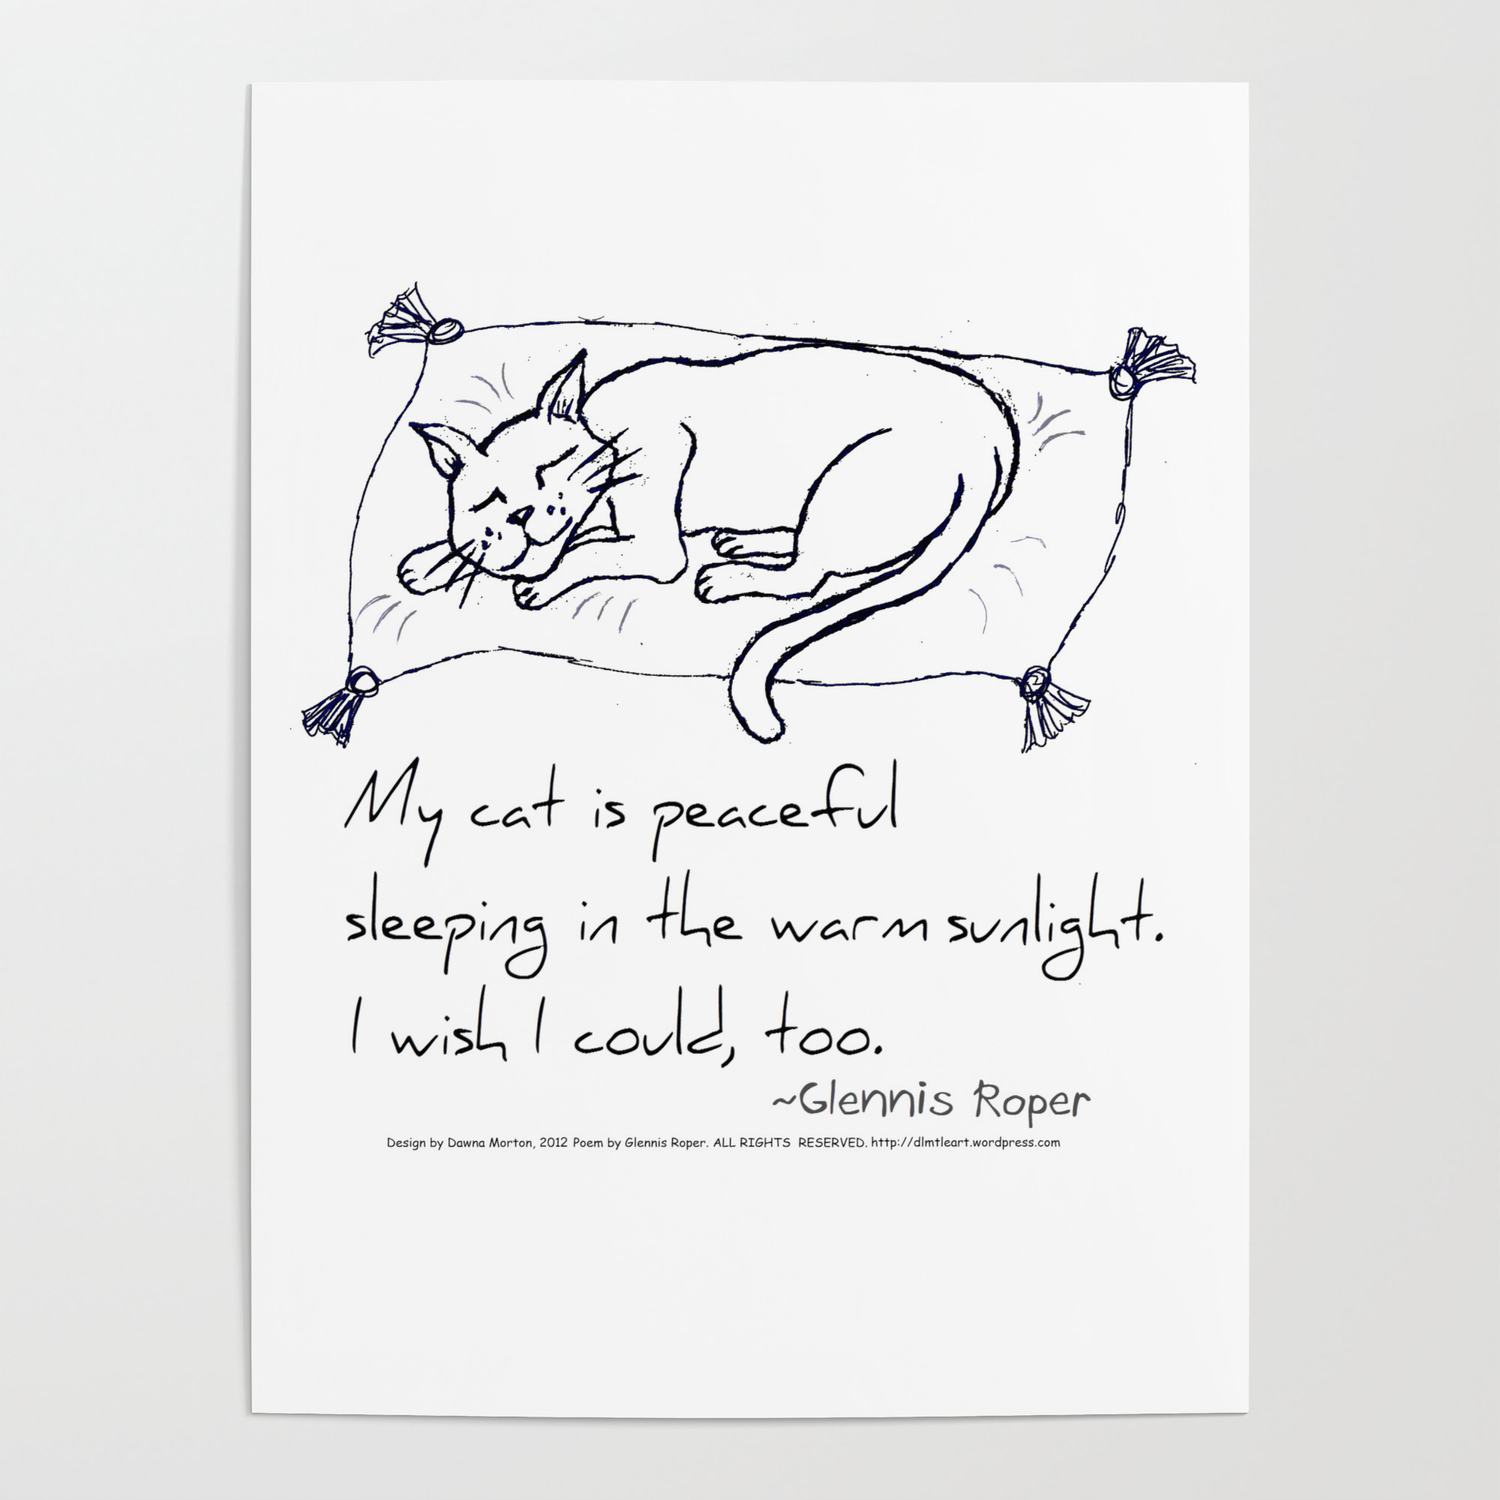 My cat is peaceful
sleeping in the warm sunlight.
I wish I could, too.
~Glennis Roper
Design by Dawna Morton, 2012 Poem by Glennis Roper. ALL RIGHTS RESERVED. http://dlmtleart.wordpress.com